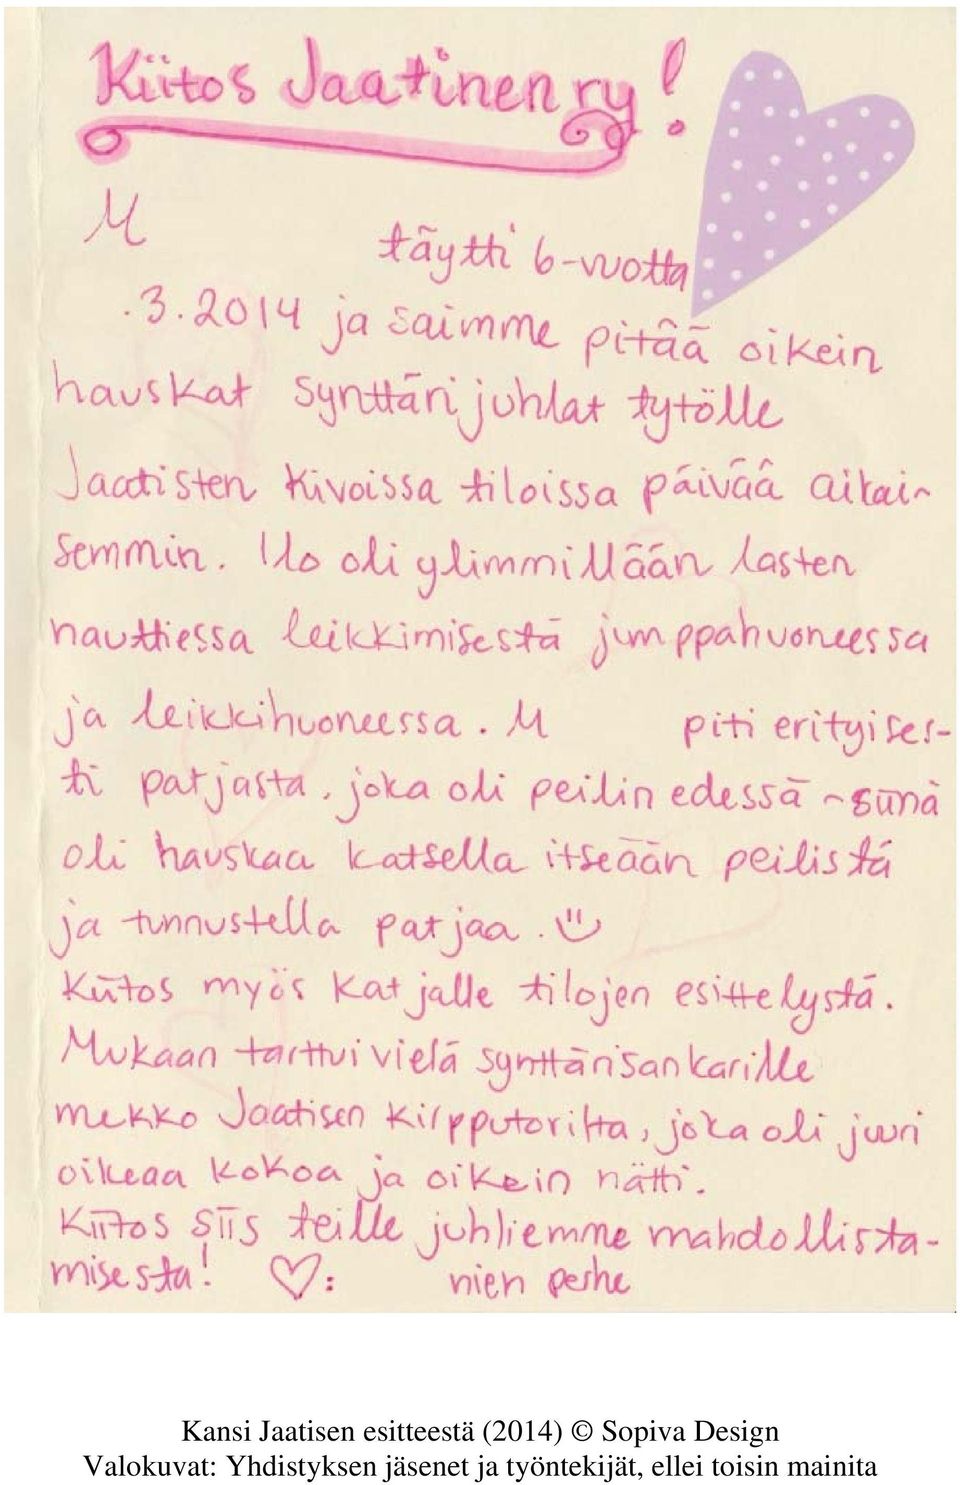 Kiitos Jaatinen ry!
M täytti 6-vuotta
.3.2014 ja saimme pitää oikein
hauskat synttärijuhlat tytölle
Jaatisten kivoissa tiloissa päivää aikai-
semmin. Ilo oli ylimmillään lasten
nauttiessa leikkimisestä jumppahuoneessa
ja leikkihuoneessa. M piti erityises-
ti patjasta, joka oli peilin edessä - siinä
oli hauskaa katsella itseään peilistä
ja tunnustella patjaa. :)
Kiitos myös Katjalle tilojen esittelystä.
Mukaan tarttui vielä synttärisankarille
mekko Jaatisen kirpputorilta, joka oli juuri
oikeaa kokoa ja oikein nätti.
Kiitos siis teille juhliemme mahdollista-
misesta! ♡: nien perhe
Kansi Jaatisen esitteestä (2014) © Sopiva Design
Valokuvat: Yhdistyksen jäsenet ja työntekijät, ellei toisin mainita